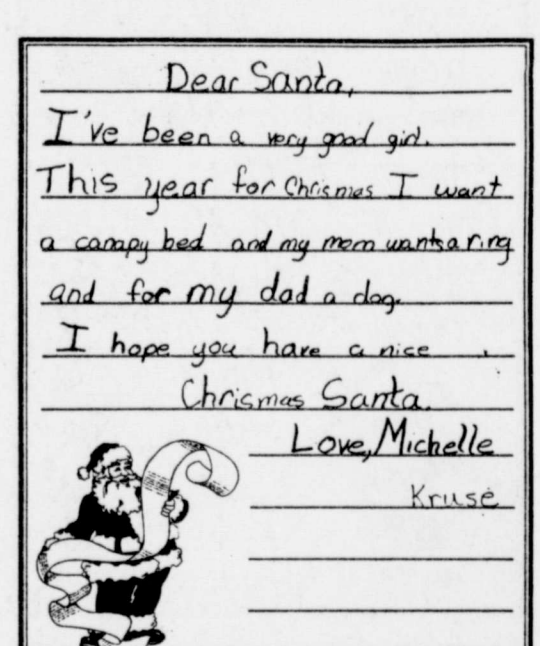 Dear Santa,
I've been a very good girl.
This year for Chrismas I want
a canapy bed and my mom wants a ring
and for my dad a dog.
I hope you have a nice
Chrismas Santa.
Love, Michelle
Kruse